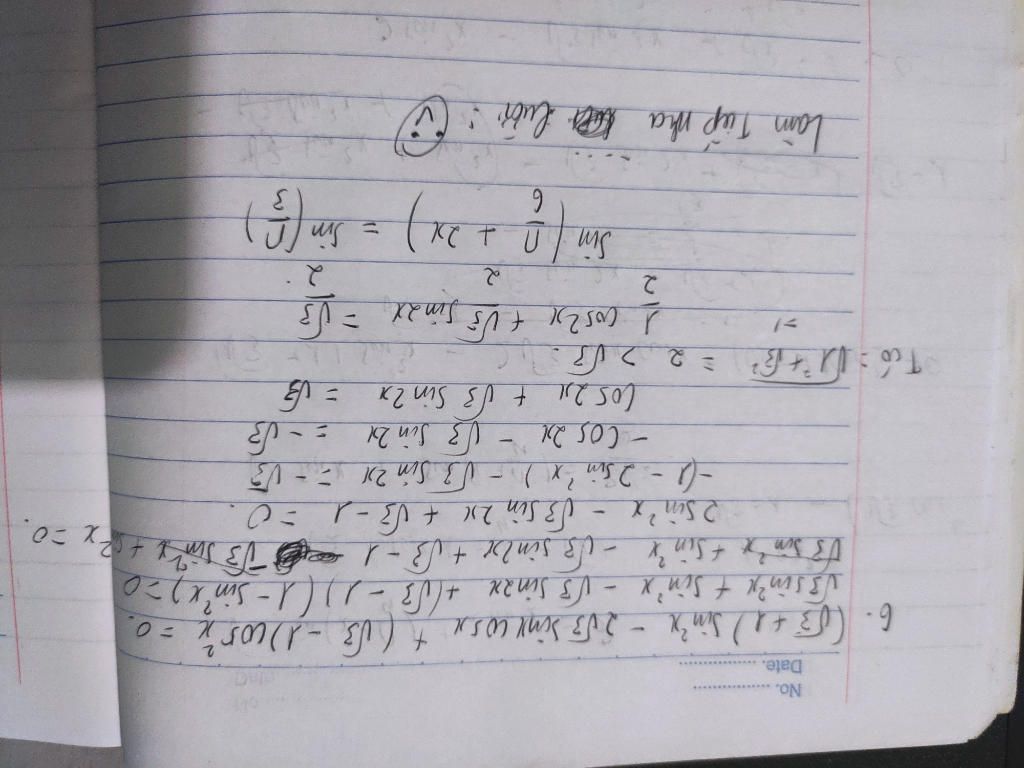 No. ..................
Date. ..................
6. (√3 + 1) sin²x - 2√3 sinx cosx + (√3 - 1) cos²x = 0.
√3 sin²x + sin²x - √3 sin2x + (√3 - 1)(1 - sin²x) = 0
√3 sin²x + sin²x - √3 sin2x + √3 - 1 - √3 sin²x + sin²x = 0.
2 sin²x - √3 sin2x + √3 - 1 = 0.
-(1 - 2 sin²x) - √3 sin2x = -√3
- cos 2x - √3 sin 2x = -√3
cos 2x + √3 sin 2x = √3
Tcó: √1² + √3² = 2 > √3.
=> 1/2 cos2x + √3/2 sin2x = √3/2.
sin(π/6 + 2x) = sin(π/3)
...
Làm Tiếp nha lười :v